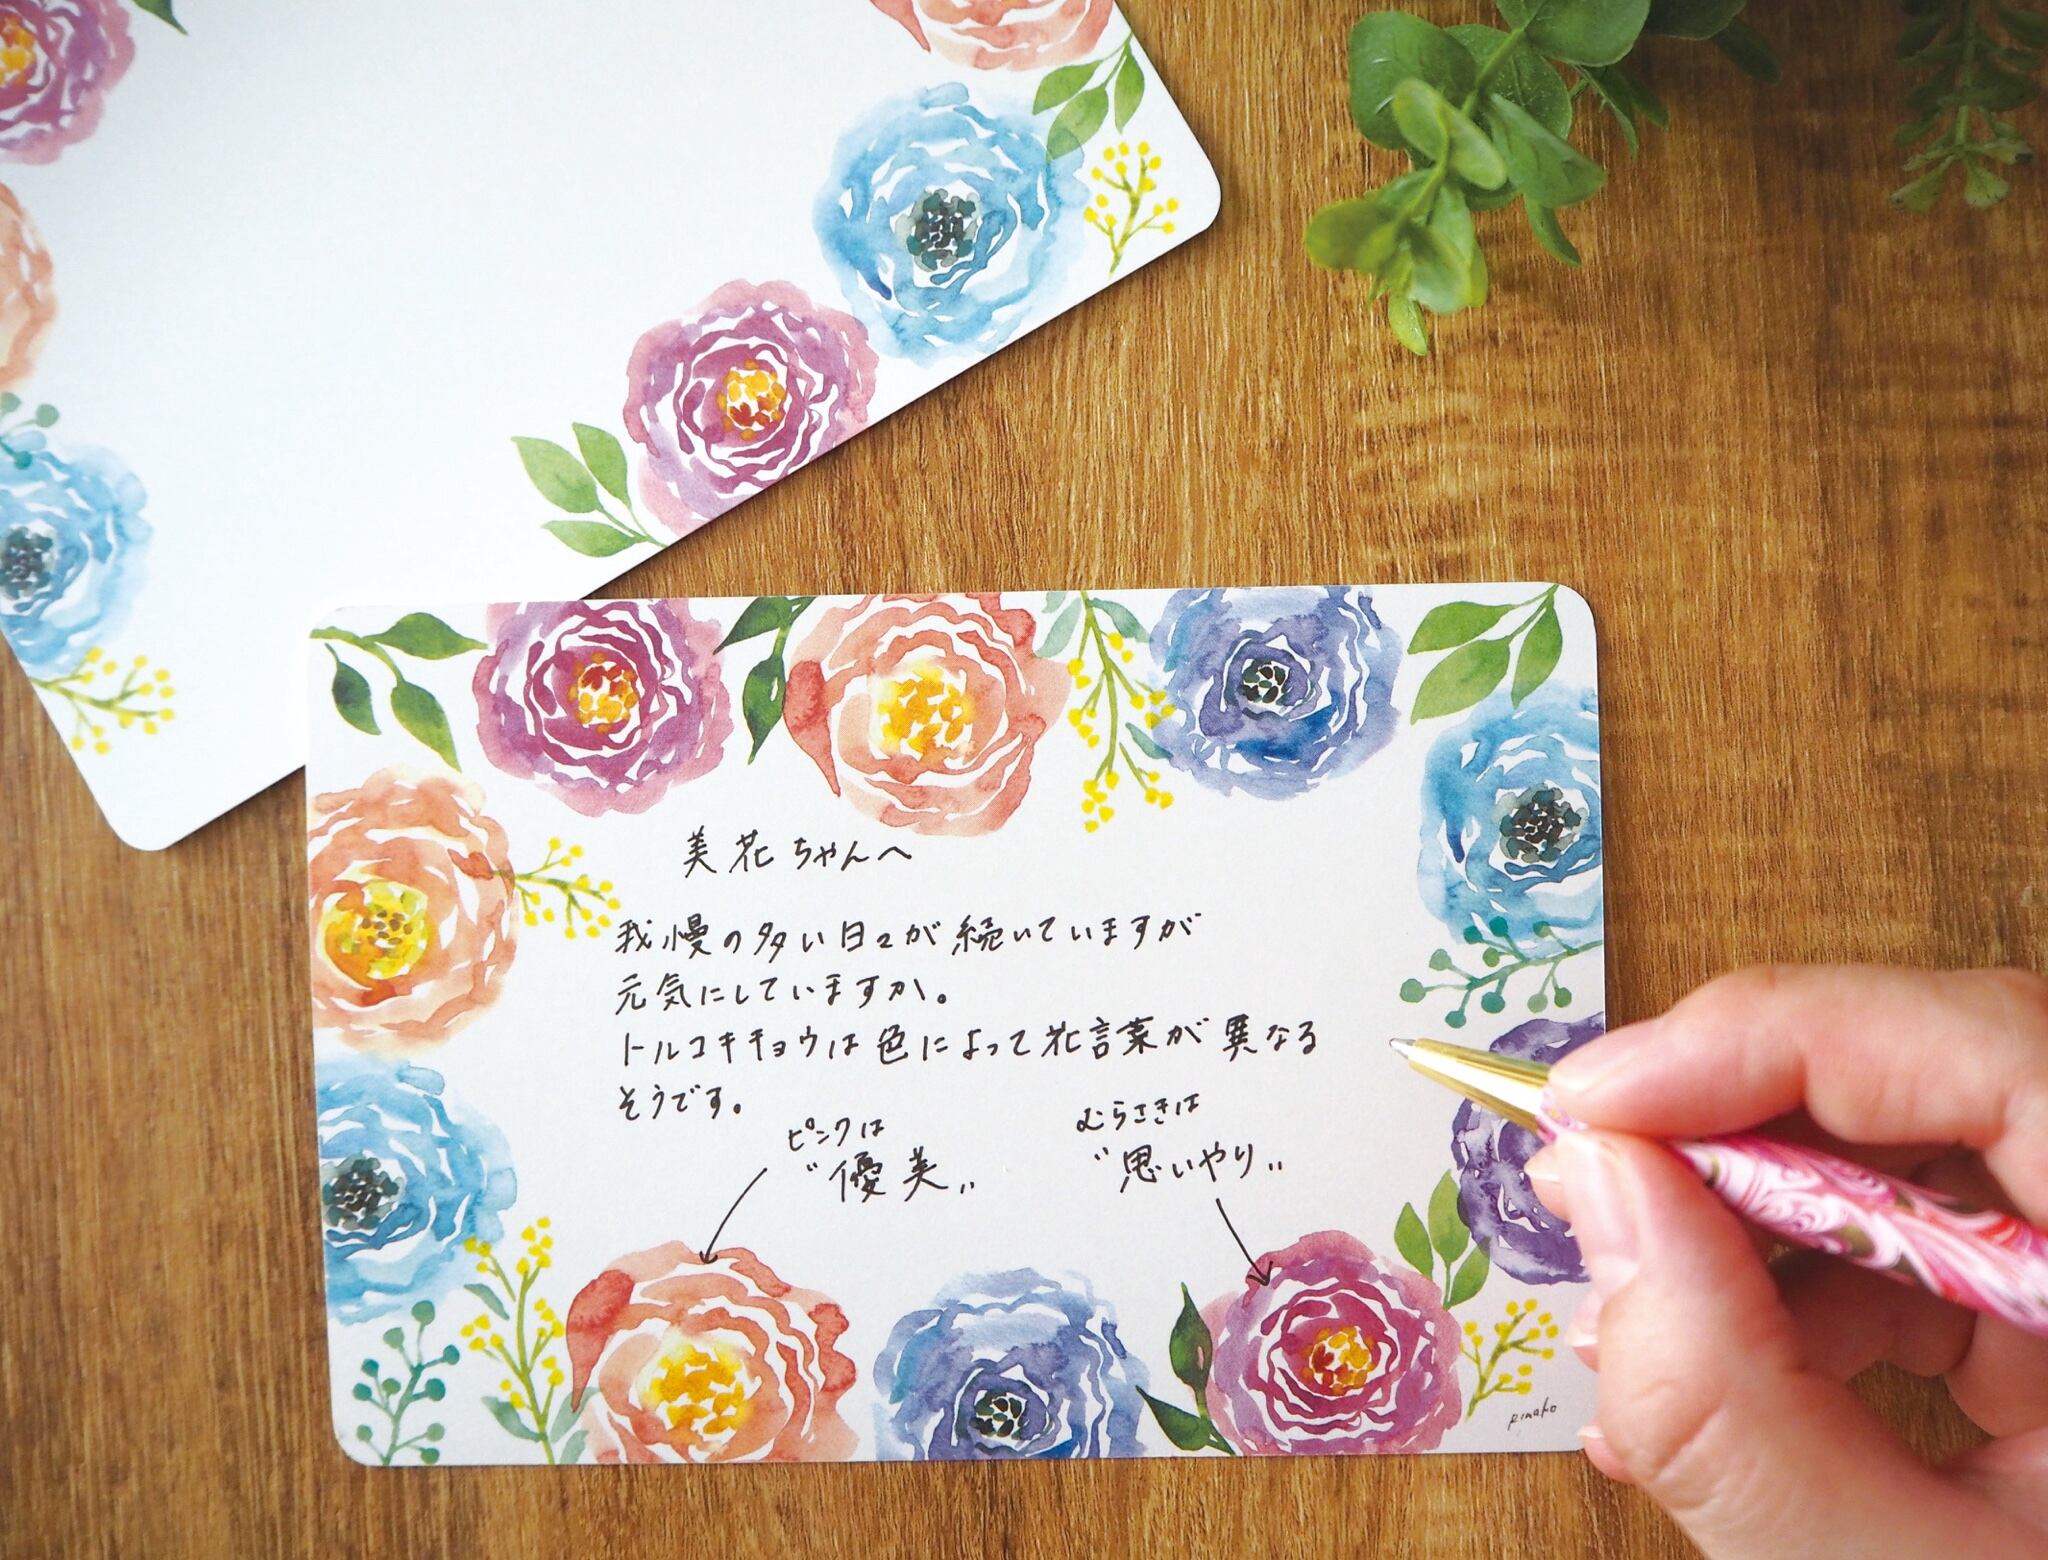 美花ちゃんへ
我慢の多い日々が続いていますが
元気にしていますか。
トルコキキョウは色によって花言葉が異なる
そうです。
ピンクは
〝優美〟
むらさきは
〝思いやり〟
Rinako